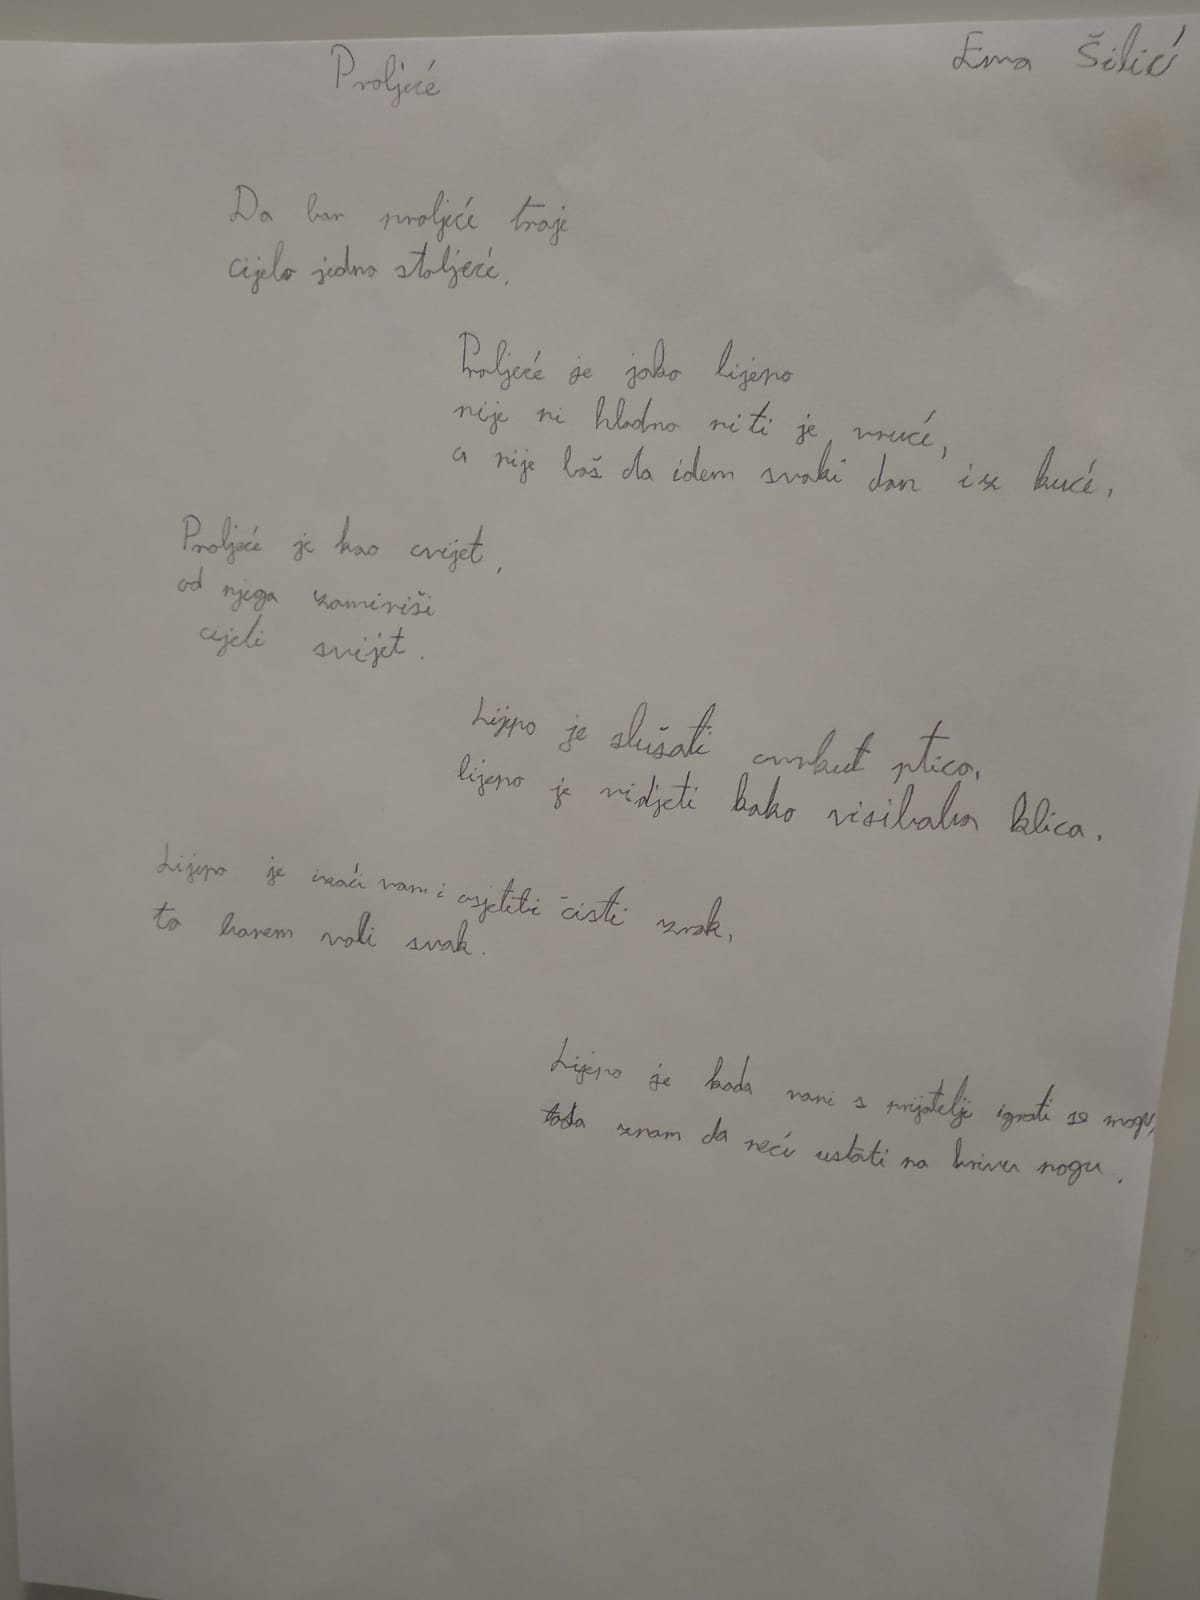 Proljeće
Ema Šilić
Da bar proljeće traje
cijelo jedno stoljeće.
Proljeće je jako lijepo
nije ni hladno niti je vruće,
a nije loš da idem svaki dan iz kuće.
Proljeće je kao cvijet,
od njega zamiriši
cijeli svijet.
Lijepo je slušati cvrkut ptica,
lijepo je vidjeti kako visibaba klica.
Lijepo je izaći vani osjetiti čisti zrak,
to barem voli svak.
Lijepo je kada vani s prijatelji igrati se mogu,
tada znam da neću ustati na krivu nogu.